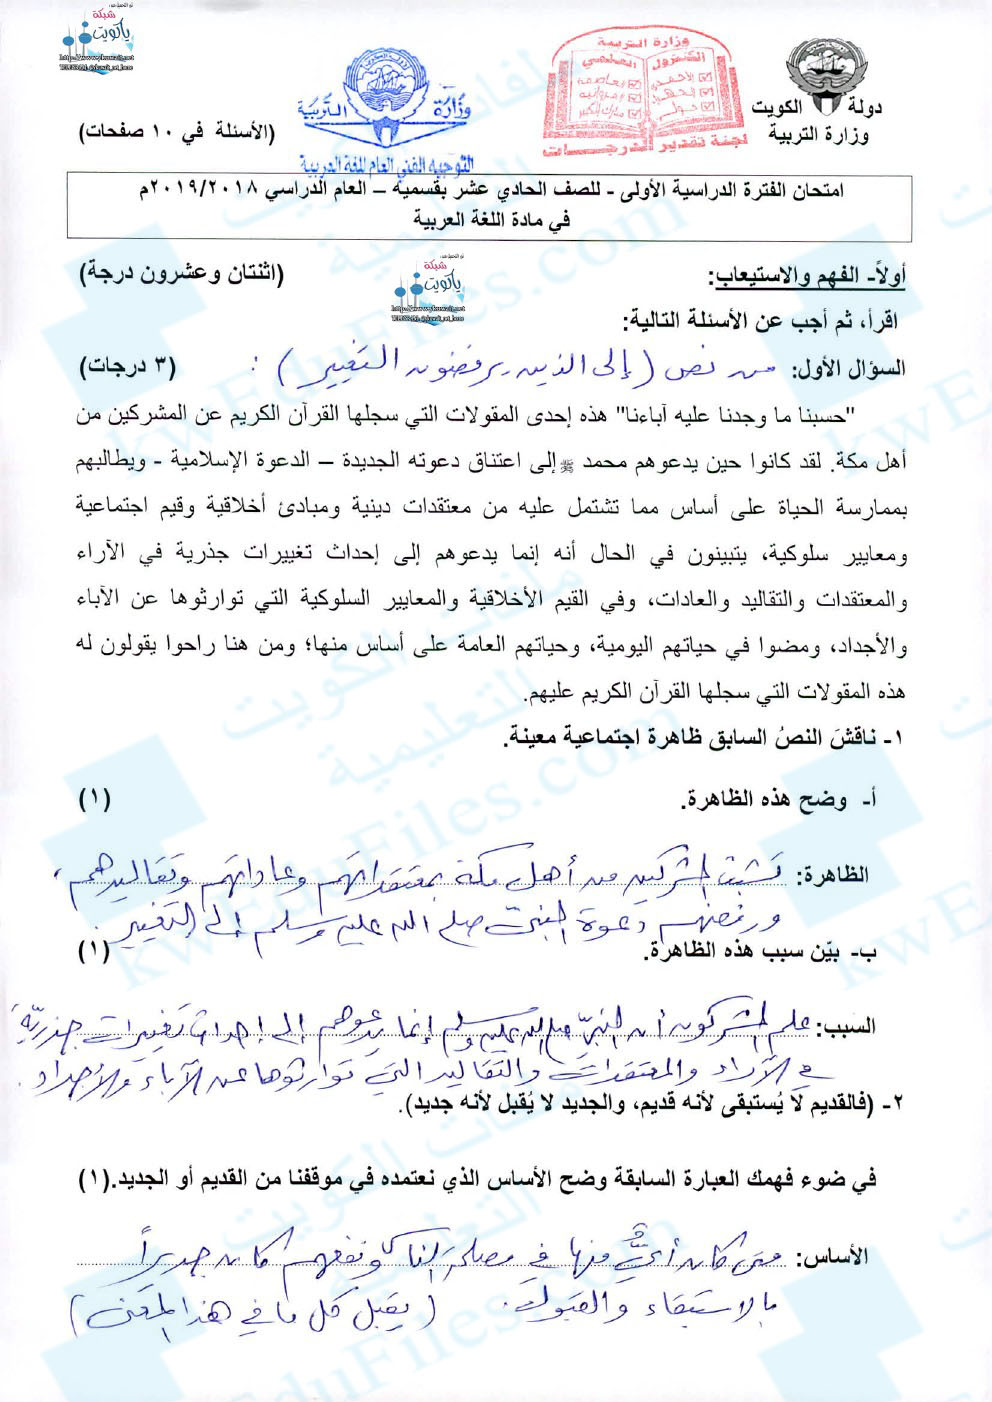 دولة الكويت
وزارة التربية
وزارة التربية
التوجيه الفني العام للغة العربية
وزارة التربية
لجنة تقدير الدرجات
(الأسئلة في ١٠ صفحات)
شبكة
ياكويت
امتحان الفترة الدراسية الأولى - للصف الحادي عشر بقسميه – العام الدراسي ٢٠١٩/٢٠١٨م
في مادة اللغة العربية
أولاً- الفهم والاستيعاب: (اثنتان وعشرون درجة)
شبكة
ياكويت
اقرأ، ثم أجب عن الأسئلة التالية:
السؤال الأول: من نص (إلى الذين يرفضون التغيير): (٣ درجات)
"حسبنا ما وجدنا عليه آباءنا" هذه إحدى المقولات التي سجلها القرآن الكريم عن المشركين من
أهل مكة. لقد كانوا حين يدعوهم محمد ﷺ إلى اعتناق دعوته الجديدة – الدعوة الإسلامية - ويطالبهم
بممارسة الحياة على أساس مما تشتمل عليه من معتقدات دينية ومبادئ أخلاقية وقيم اجتماعية
ومعايير سلوكية، يتبينون في الحال أنه إنما يدعوهم إلى إحداث تغييرات جذرية في الآراء
والمعتقدات والتقاليد والعادات، وفي القيم الأخلاقية والمعايير السلوكية التي توارثوها عن الآباء
والأجداد، ومضوا في حياتهم اليومية، وحياتهم العامة على أساس منها؛ ومن هنا راحوا يقولون له
هذه المقولات التي سجلها القرآن الكريم عليهم.
١- ناقشَ النصُ السابق ظاهرة اجتماعية معينة.
أ- وضح هذه الظاهرة. (١)
الظاهرة: تشبث المشركين من أهل مكة بمعتقداتهم وعاداتهم وتقاليدهم،
ورفضهم دعوة النبي صلى الله عليه وسلم إلى التغيير.
ب- بيّن سبب هذه الظاهرة. (١)
السبب: علم المشركون أن النبيّ صلى الله عليه وسلم إنما يدعوهم إلى إحداث تغييرات جذريّة
في الآراء والمعتقدات والتقاليد التي توارثوها عن الآباء والأجداد.
٢- (فالقديم لا يُستبقى لأنه قديم، والجديد لا يُقبل لأنه جديد).
في ضوء فهمك العبارة السابقة وضح الأساس الذي نعتمده في موقفنا من القديم أو الجديد.(١)
الأساس: متى كان أيٌّ منها في مصلحة الناس ونفعهم كان جديراً
بالاستبقاء والقبول. (يقبل كل ما في هذا المعنى)
ملفات الكويت
التعليمية
kwEduFiles.com